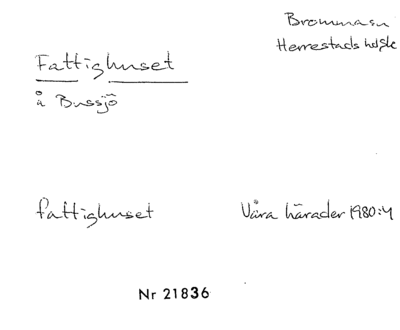 Brommasn
Herrestads hd, Sk
Fattighuset
å Bussjö
fattighuset
Våra härader 1980:4
Nr 21836